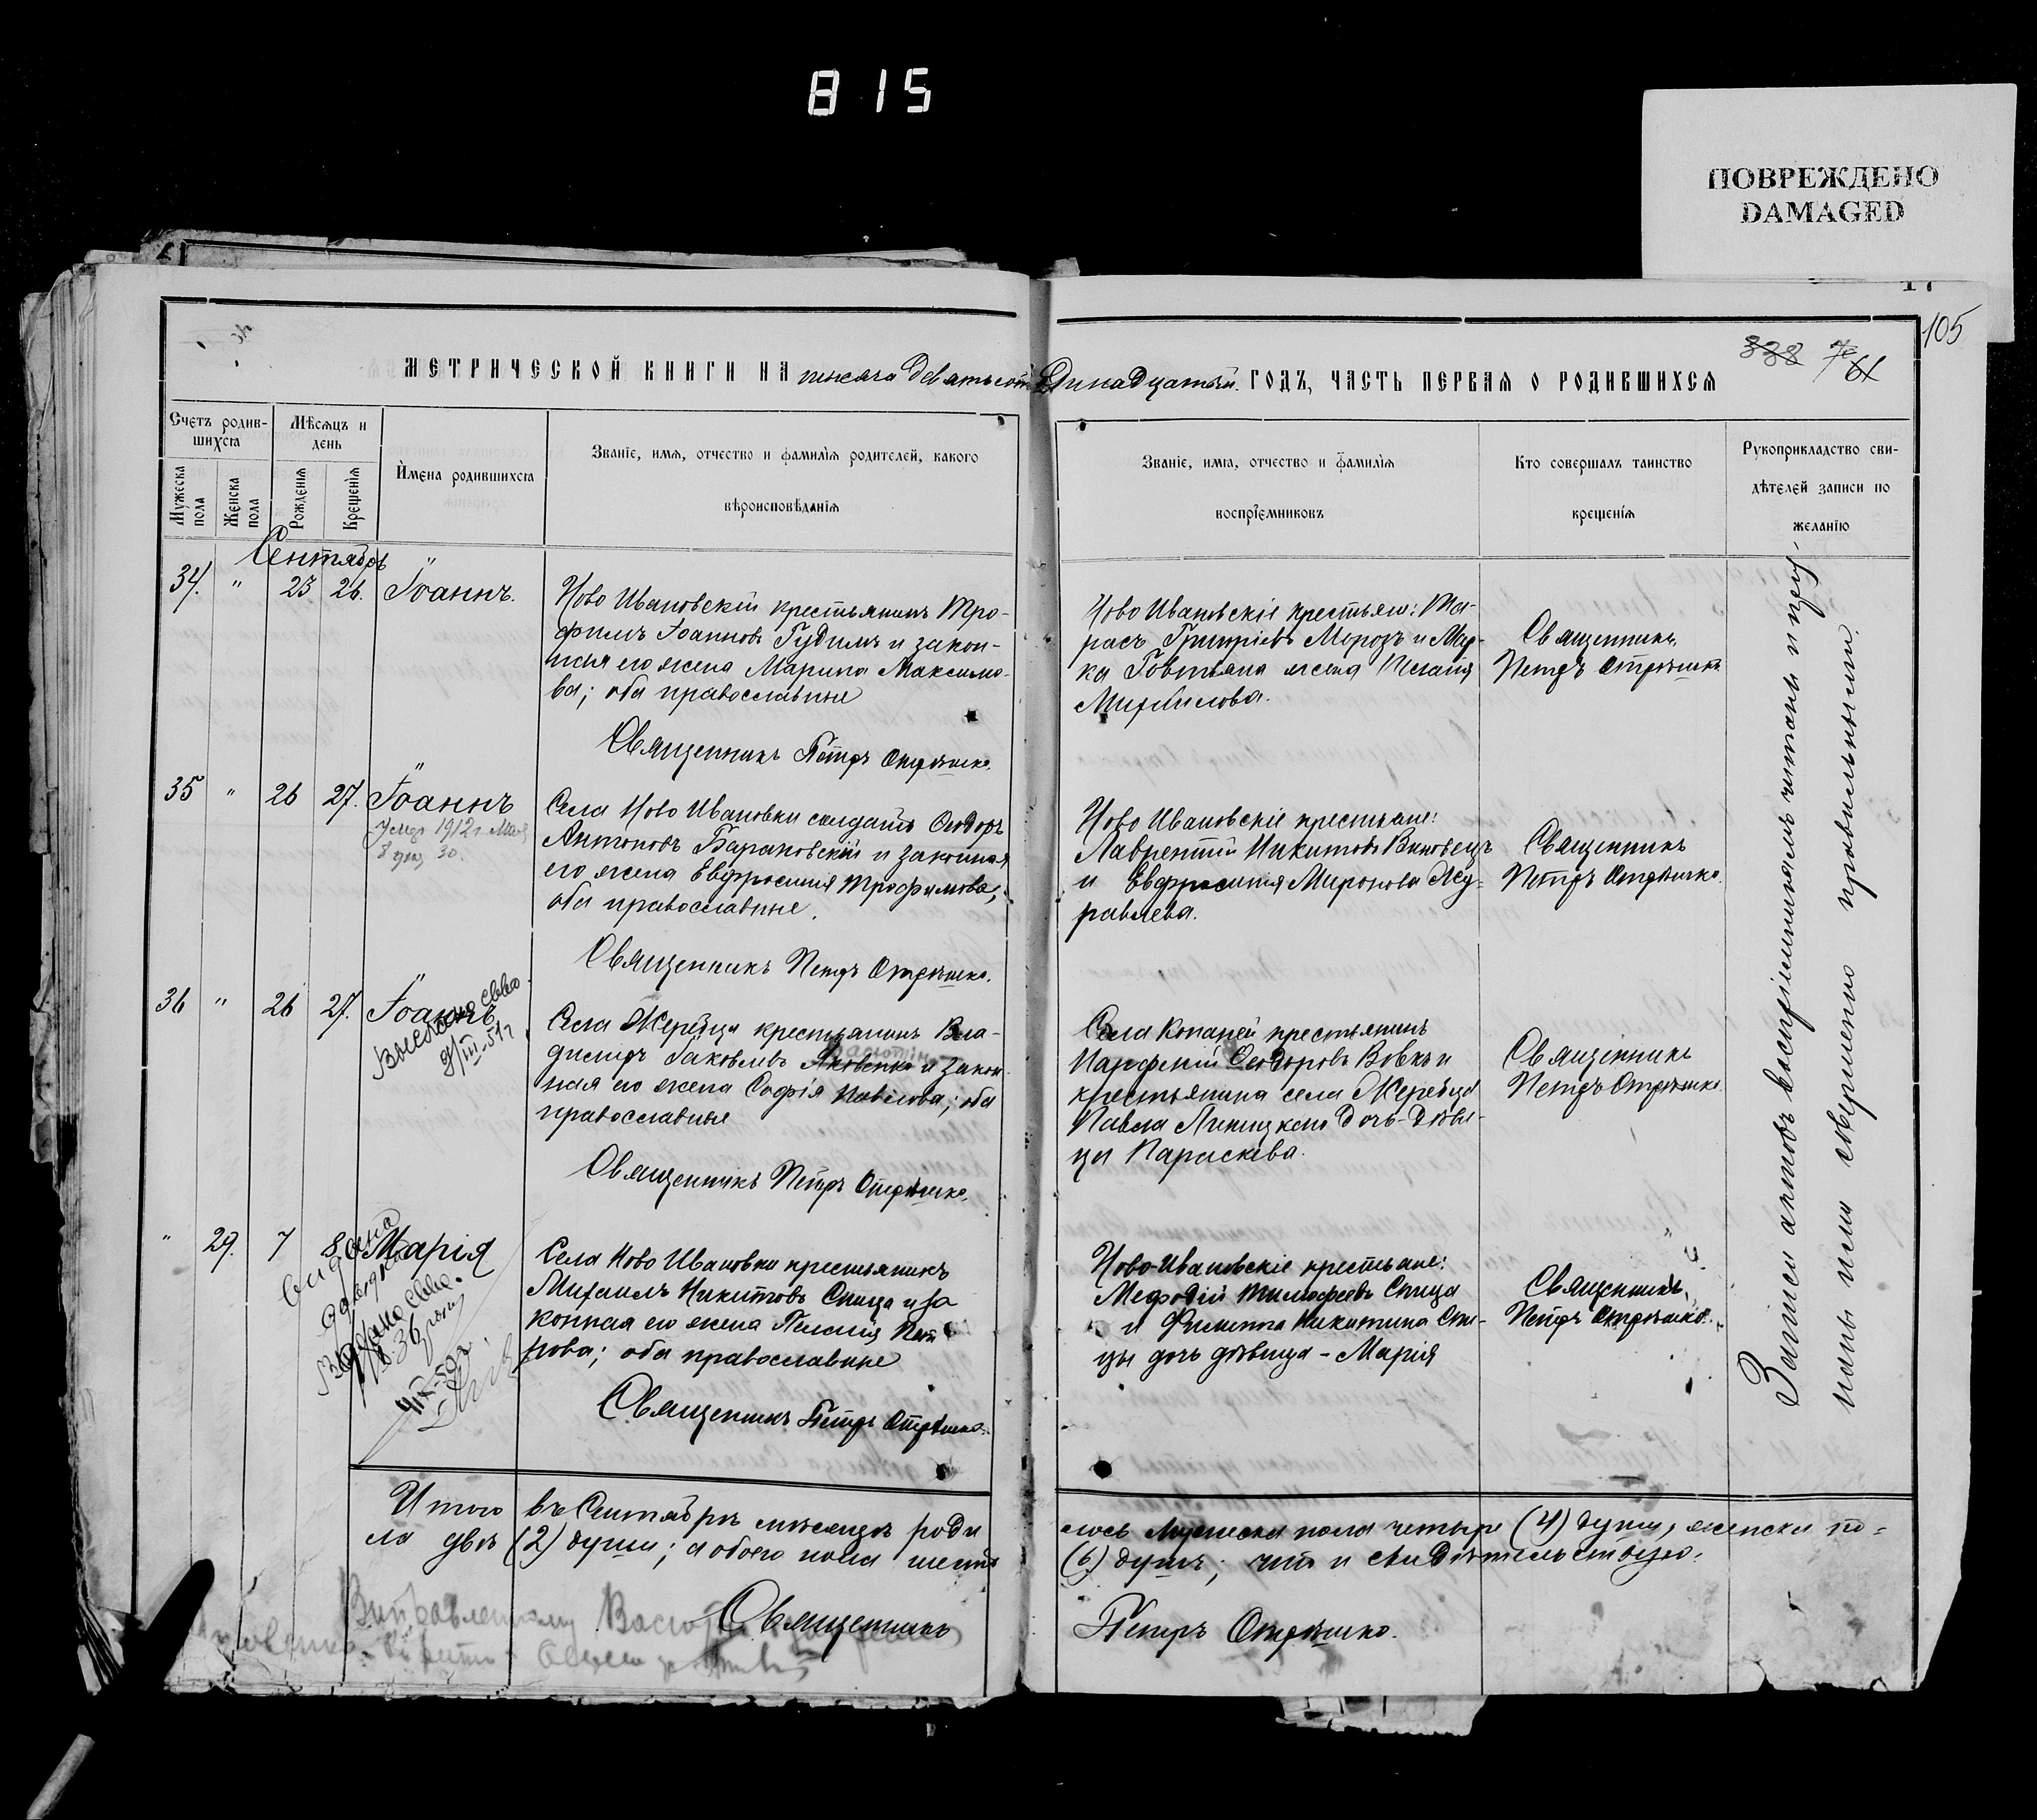 815
ПОВРЕЖДЕНО
DAMAGED
105
338 76 61
МЕТРИЧЕСКОЙ КНИГИ НА тысяча девятьсот Одинадцатый ГОДЪ, ЧАСТЬ ПЕРВАЯ О РОДИВШИХСЯ
Счетъ родив-
шихся
Мужеска пола
Женска пола
Мѣсяцъ и
день
Рожденія
Крещенія
Имена родившихся
Званіе, имя, отчество и фамилія родителей, какого
вѣроисповѣданія
Званіе, имя, отчество и фамилія
воспріемниковъ
Кто совершалъ таинство
крещенія
Рукоприкладство сви-
дѣтелей записи по
желанію
Сентябрь
34. " 23 26. Іоаннъ.
Ново Ивановскій крестьянинъ Тро-
фимъ Іоанновъ Гудимъ и закон-
ная его жена Марина Максимо-
ва; оба православные
Священникъ Петръ Отрѣшко.
Ново Ивановскіе крестьяне: Та-
расъ Григоріевъ Морозъ и Мар-
ка Говтвяна жена
Михайлова.
Священникъ
Петръ Отрѣшко
35 " 26 27. Іоаннъ
Умер 1912 г. Мая
30.
Села Ново Ивановки солдатъ Ѳеодоръ
Антоновъ Барановскій и законная
его жена Евфросинія Трофимова;
оба православные.
Священникъ Петръ Отрѣшко.
Ново Ивановскіе крестьяне:
Лаврентій Никитовъ Виновецъ
и Евфросинія Миронова Жу-
равлева.
Священникъ
Петръ Отрѣшко.
36 " 26 27. Іоаннъ
Выслано св-во
III-51г
Села Жеребца крестьянинъ Вла-
диміръ Іаковлевъ Яковенко и закон-
ная его жена Софія Павлова; оба
православные
Священникъ Петръ Отрѣшко.
Села Копаней крестьянинъ
Парфеній Ѳеодоровъ Вовкъ и
крестьянина села Жеребца
Павла Линицкаго дочь-дѣви-
ца Параскева.
Священникъ
Петръ Отрѣшко
" 29. 7 8 Марія
Выдано св-во.
IX-50г.
Села Ново Ивановки крестьянинъ
Михаилъ Никитовъ Спица и за
конная его жена Пелагія Пет
рова; оба православные
Священникъ Петръ Отрѣшко.
Ново-Ивановскіе крестьяне:
Мефодій Тимофеевъ Спица
и Филиппа Никитина Спи-
цы дочь дѣвица - Марія
Священникъ
Петръ Отрѣшко.
Записи актовъ воспріемникамъ читаны и приз-
наны ими совершенно правильными
Итого въ Сентябрѣ мѣсяцѣ роди
лось мужеска пола четыре (4) души, женска по-
ла двѣ (2) души; а обоего пола шесть
(6) душъ; что и свидѣтельствую.
Священникъ
Петръ Отрѣшко.